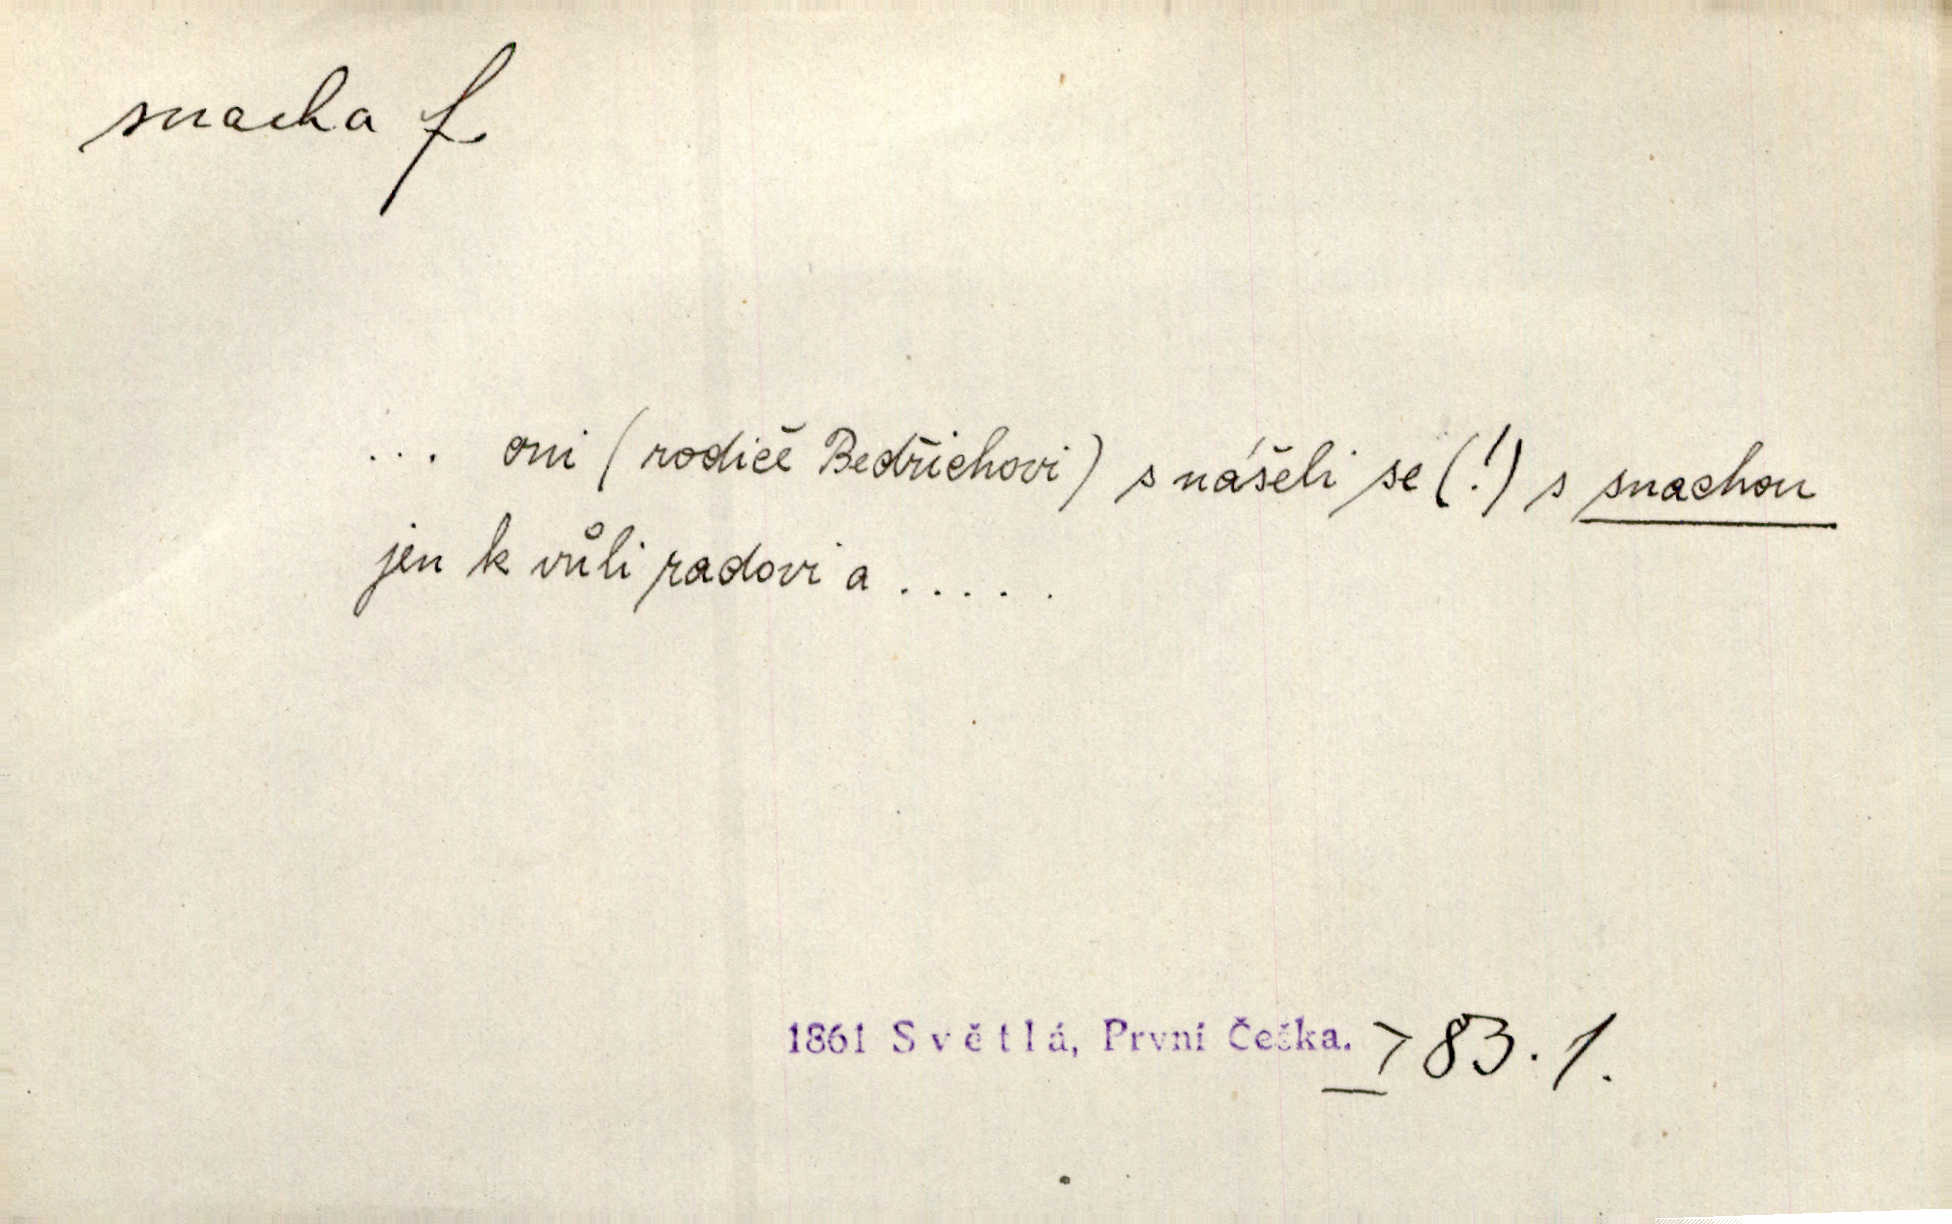 snacha f.
... oni (rodiče Bedřichovi) snášeli se (!) s snachou
jen k vůli radovi a .....
1861 Světlá, První Češka. I 83.1.